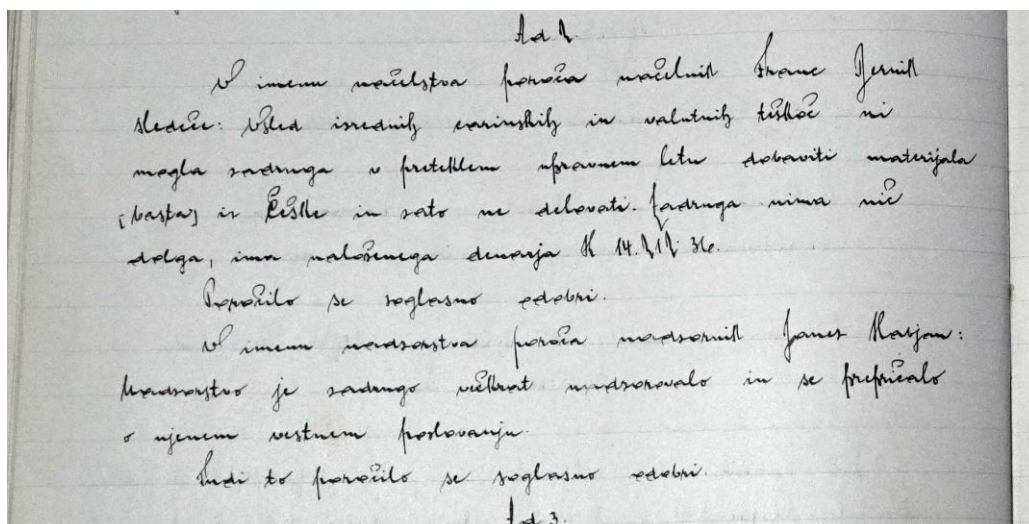 Ad 2.
V imenu načelstva poroča načelnik Franc Jernik
sledeče: Vsled izrednih carinskih in valutnih težkoč ni
mogla zadruga v preteklem upravnem letu dobaviti materijala
(basta) iz Češke in zato ne delovati. Zadruga nima nič
dolga, ima naloženega denarja K 14.212.36.
Poročilo se soglasno odobri.
V imenu nadzorstva poroča nadzornik Janez Karjan:
Nadzorstvo je zadrugo večkrat nadzorovalo in se prepričalo
o njenem vestnem poslovanju.
Tudi to poročilo se soglasno odobri.
Ad 3.